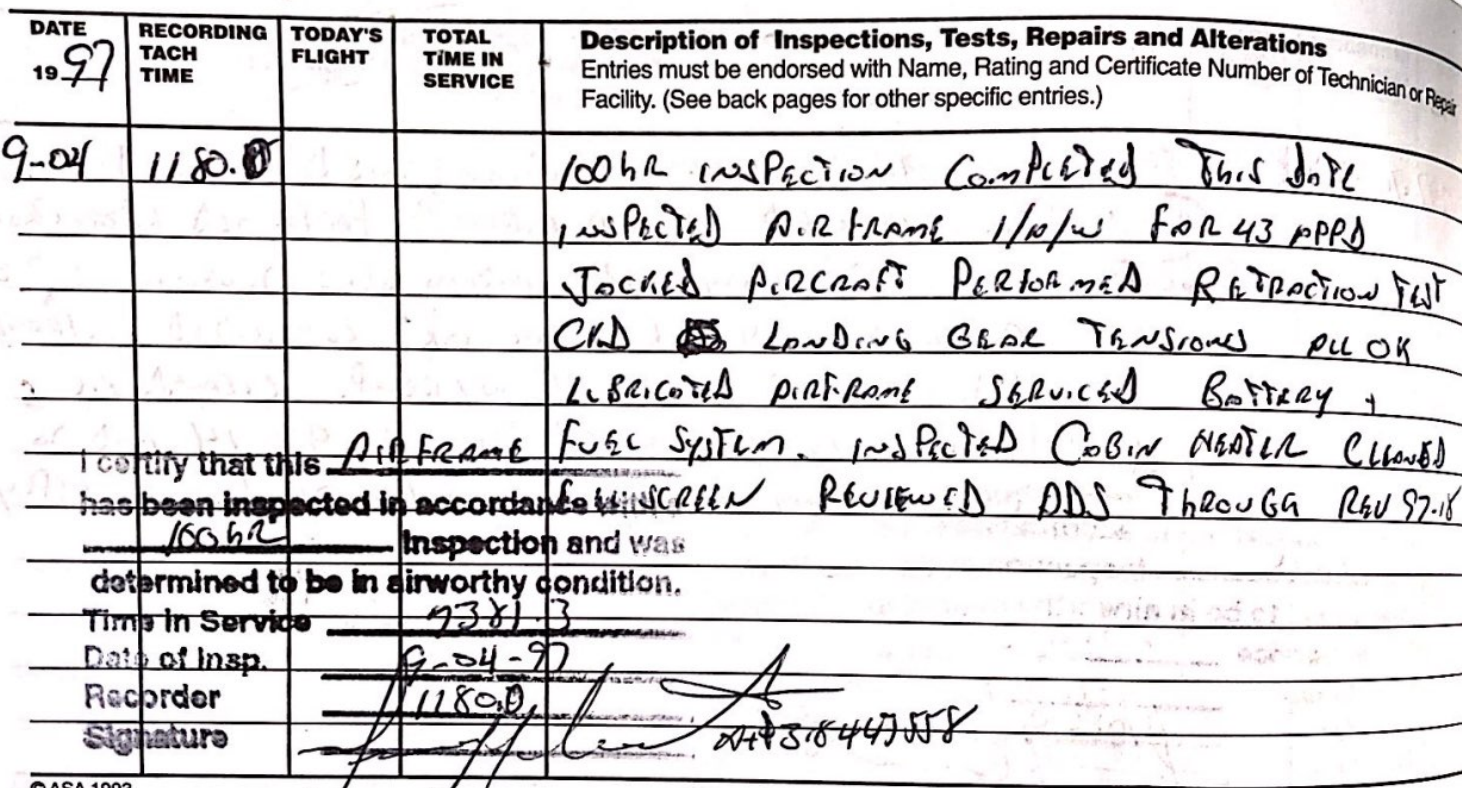 DATE
19 97
RECORDING
TACH
TIME
TODAY'S
FLIGHT
TOTAL
TIME IN
SERVICE
Description of Inspections, Tests, Repairs and Alterations
Entries must be endorsed with Name, Rating and Certificate Number of Technician or Repair
Facility. (See back pages for other specific entries.)
9-04 1180.0 100 hR INSPECTION COMPLETED THIS DATE
INSPECTED AIRFRAME I/A/W FAR 43 APPD
JACKED AIRCRAFT PERFORMED RETRACTION TEST
CKD LANDING GEAR TENSIONS ALL OK
LUBRICATED AIRFRAME SERVICED BATTERY +
FUEL SYSTEM. INSPECTED CABIN HEATER CLEANED
SCREEN REVIEWED ADS THROUGH REV 97-18
I certify that this AIRFRAME
has been inspected in accordance with a
100 hR Inspection and was
determined to be in airworthy condition.
Time in Service 7381.3
Date of Insp. 9-04-97
Recorder 1180.0
Signature
© ASA 1992